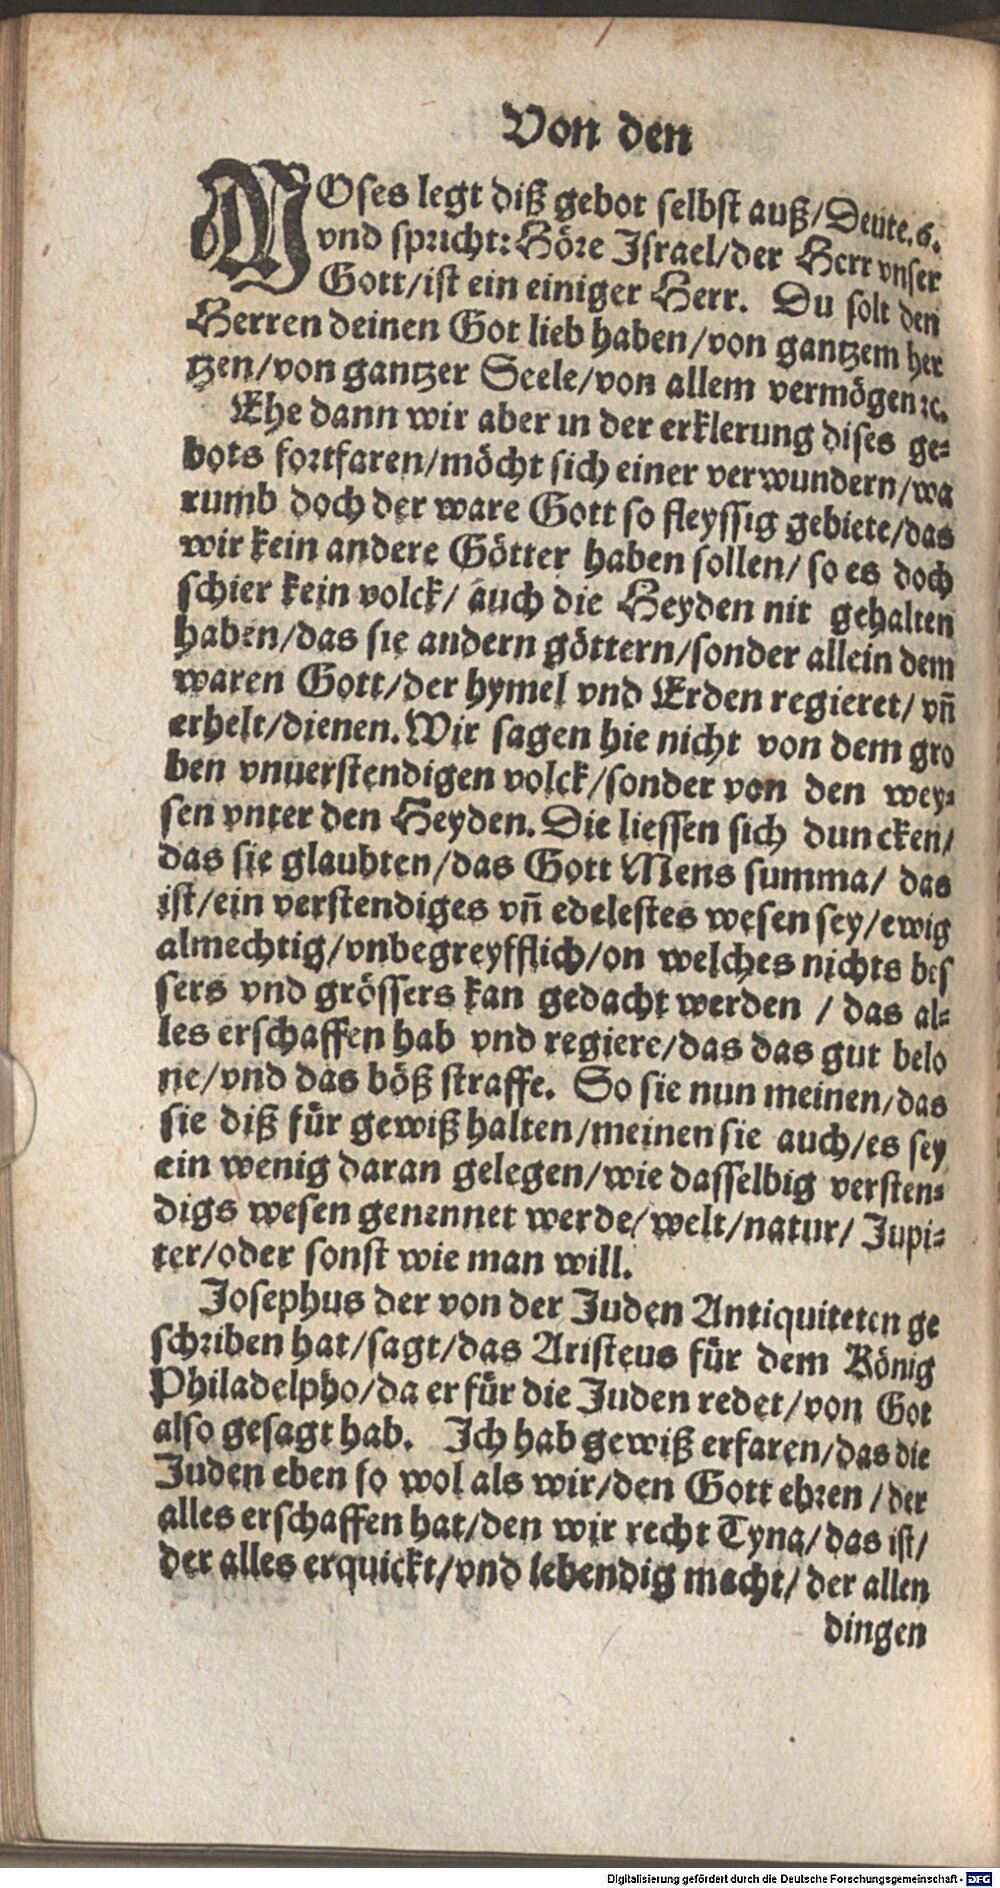 Von den
MOses legt diß gebot selbst auß/Deute.6.
vnd spricht: Höre Israel/der Herr vnser
Gott/ist ein einiger Herr. Du solt den
Herren deinen Got lieb haben/von gantzem her
tzen/von gantzer Seele/von allem vermögen ꝛc.
Ehe dann wir aber in der erklerung dises ge⸗
bots fortfaren/möcht sich einer verwundern/wa
rumb doch der ware Gott so fleyssig gebiete/das
wir kein andere Götter haben sollen/ so es doch
schier kein volck/ auch die Heyden nit gehalten
haben/das sie andern göttern/sonder allein dem
waren Gott/der hymel vnd Erden regieret/ vñ
erhelt/dienen. Wir sagen hie nicht von dem gro
ben vnuerstendigen volck/sonder von den wey⸗
sen vnter den Heyden. Die liessen sich duncken/
das sie glaubten/das Gott Mens summa/ das
ist/ein verstendiges vñ edelestes wesen sey/ewig
almechtig/vnbegreyfflich/on welches nichts bes
sers vnd grössers kan gedacht werden / das al⸗
les erschaffen hab vnd regiere/das das gut belo
ne/vnd das böß straffe. So sie nun meinen/das
sie diß für gewiß halten/meinen sie auch/es sey
ein wenig daran gelegen/wie dasselbig versten⸗
digs wesen genennet werde/welt/natur/ Jupi⸗
ter/oder sonst wie man will.
Josephus der von der Juden Antiquiteten ge
schriben hat/sagt/das Aristeus für dem König
Philadelpho/da er für die Juden redet/von Got
also gesagt hab. Ich hab gewiß erfaren/das die
Juden eben so wol als wir/den Gott ehren / der
alles erschaffen hat/den wir recht Tyna/das ist/
der alles erquickt/vnd lebendig macht/ der allen
dingen
Digitalisierung gefördert durch die Deutsche Forschungsgemeinschaft - DFG